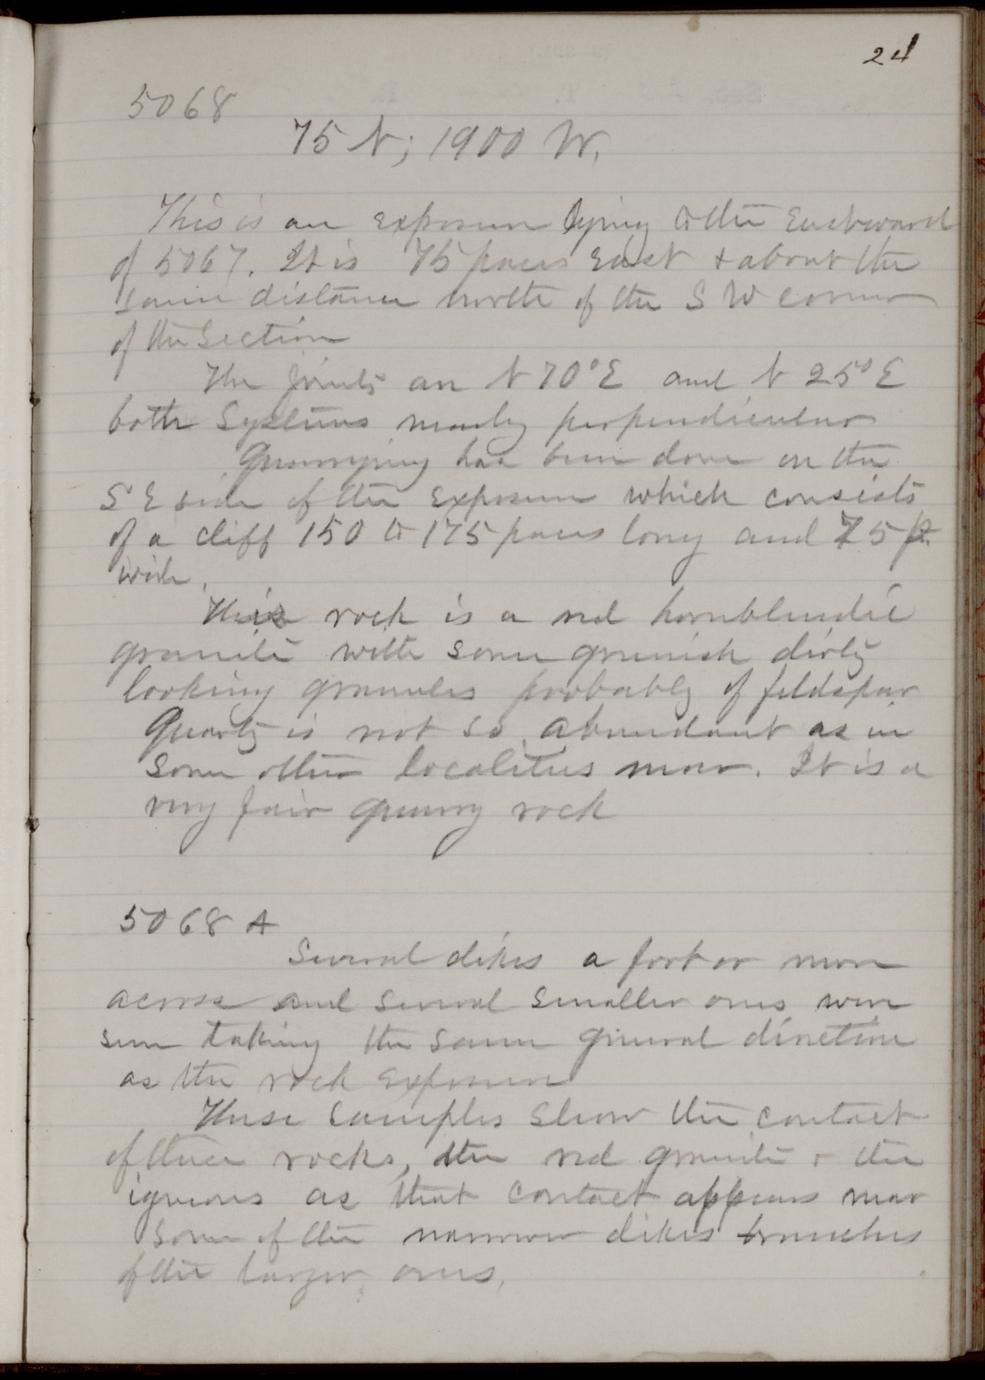 24
5068
75 N; 1900 W.
This is an exposure lying to the Eastward
of 5067. It is 75 paces East & about the
same distance north of the S W corner
of the Section
The joints are N 70° E and N 25° E
both Systems nearly perpendicular
Quarrying has been done on the
S E side of the exposure which consists
of a cliff 150 to 175 paces long and 75 ft.
wide.
This rock is a red hornblendic
granite with some greenish dirty
looking granules probably of feldspar
Quartz is not so abundant as in
some other localities near. It is a
very fair quarry rock
5068 A
Several dikes a foot or more
across and several smaller ones were
seen taking the same general direction
as the rock exposure
These samples show the contact
of these rocks, the red granite & the
igneous as that contact appears near
some of the narrow dikes branches
of the larger ones.